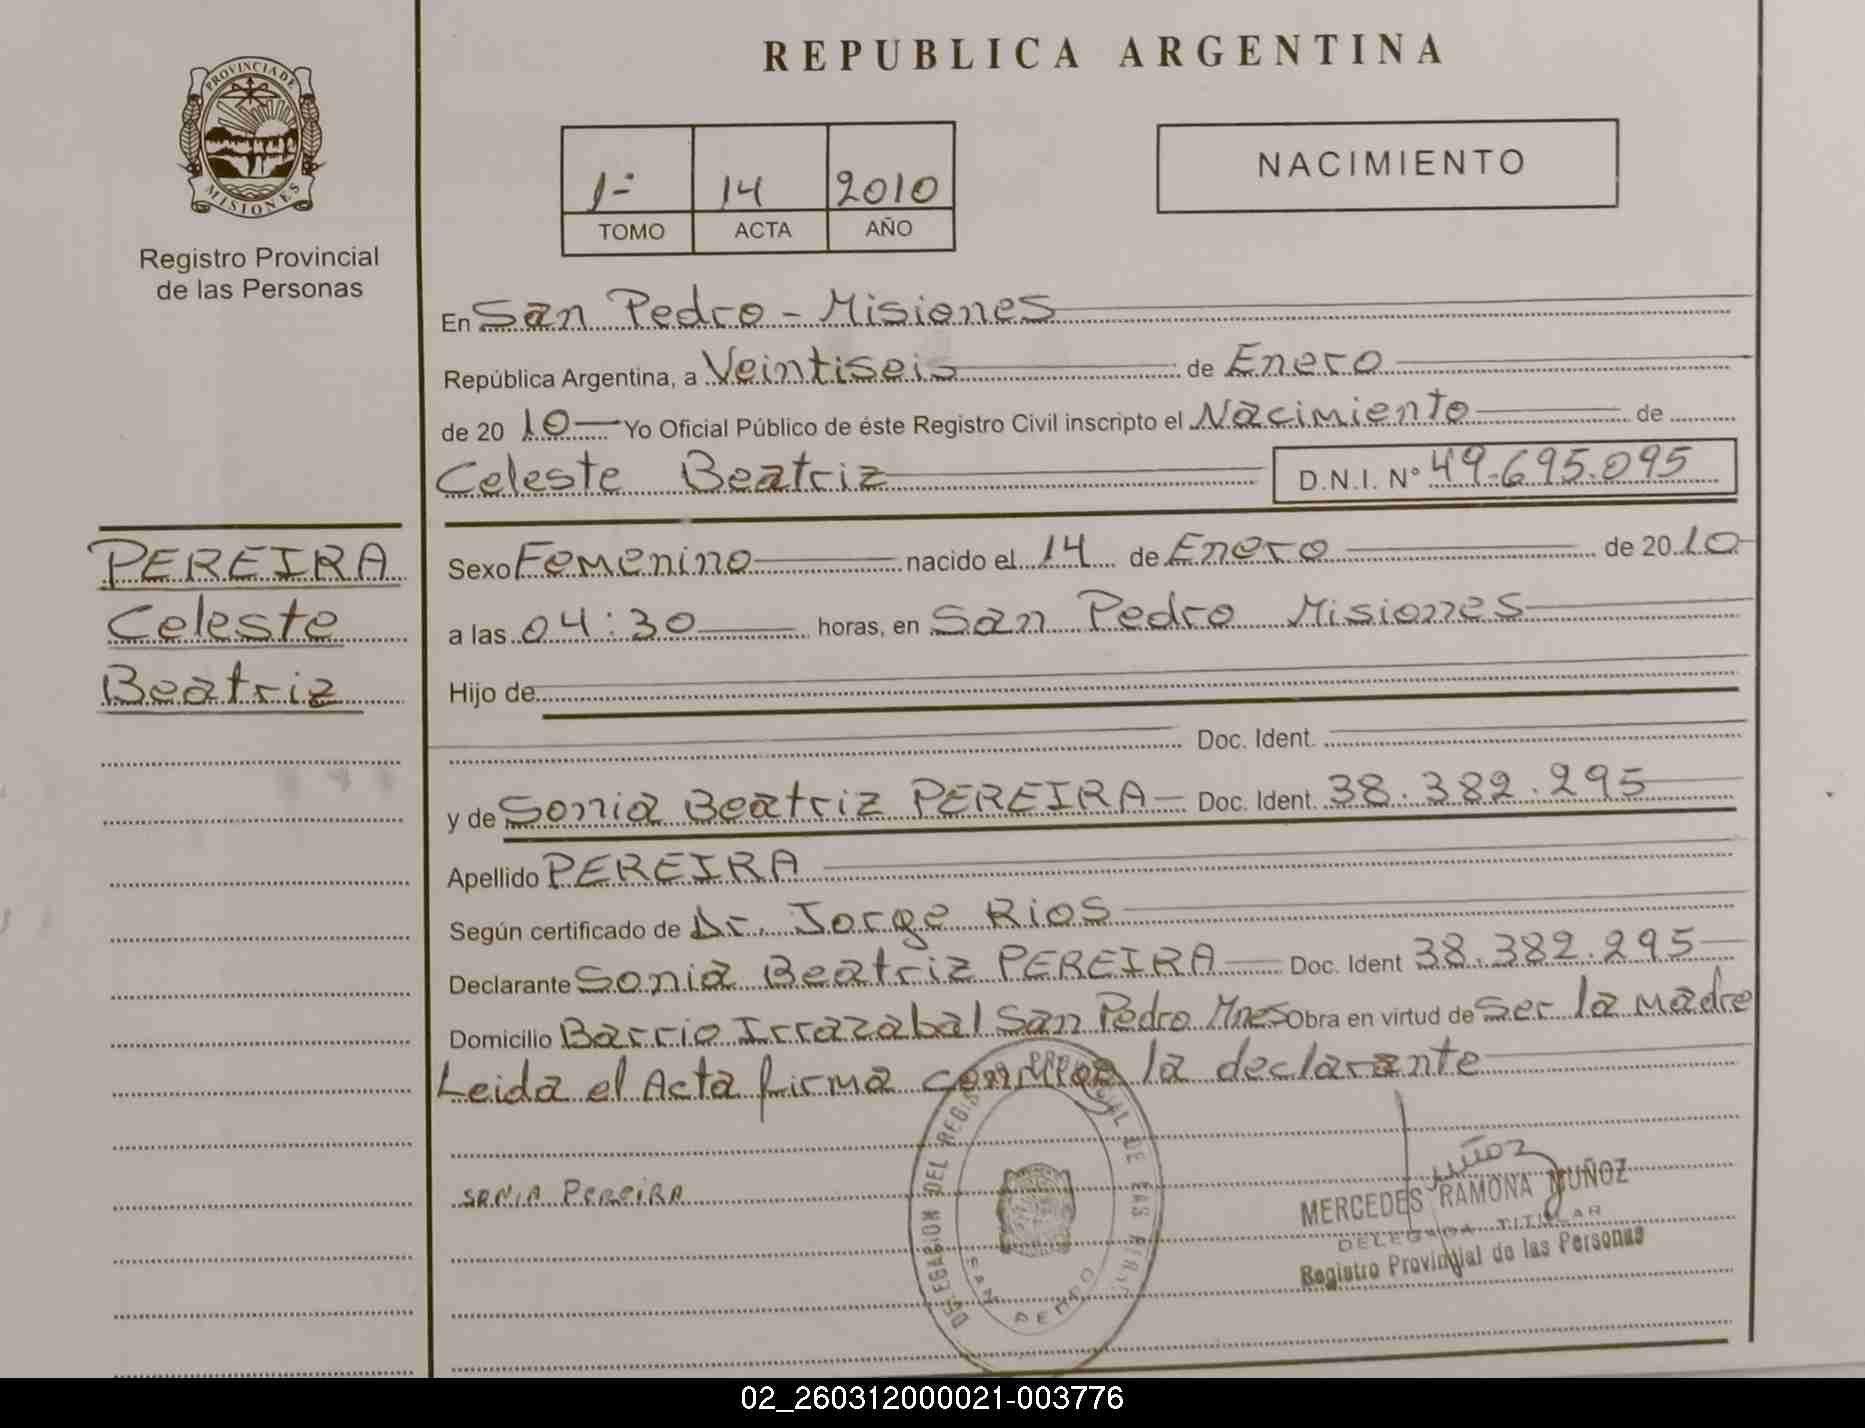 REPUBLICA ARGENTINA
PROVINCIA DE
MISIONES
Registro Provincial
de las Personas
1=
14
2010
TOMO
ACTA
AÑO
NACIMIENTO
En San Pedro - Misiones
República Argentina, a Veintiseis de Enero
de 2010 Yo Oficial Público de éste Registro Civil inscripto el Nacimiento de
Celeste Beatriz D.N.I. Nº 49.695.095
PEREIRA
Celeste
Beatriz
Sexo Femenino nacido el 14 de Enero de 2010
a las 04:30 horas, en San Pedro Misiones
Hijo de
Doc. Ident.
y de Sonia Beatriz PEREIRA Doc. Ident. 38.382.295
Apellido PEREIRA
Según certificado de Dr. Jorge Rios
Declarante Sonia Beatriz PEREIRA Doc. Ident 38.382.295
Domicilio Barrio Irrazabal San Pedro Mnes Obra en virtud de Ser la madre
Leida el Acta firma conmigo la declarante
SONIA PEREIRA
DELEGACION DEL REGISTRO PROVINCIAL DE LAS PERS.
SAN PEDRO
Muñoz
MERCEDES RAMONA MUÑOZ
DELEGADA TITULAR
Registro Provincial de las Personas
02_260312000021-003776